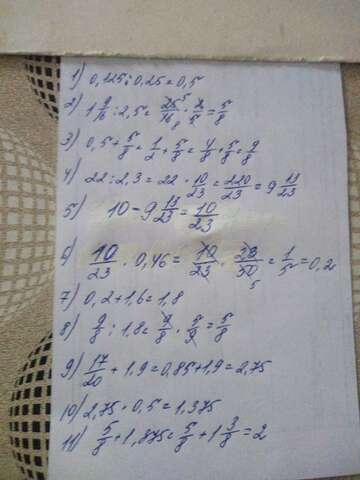 1) 0,125:0,25=0,5
2) 1 9/16 : 2,5 = 25/16 · 2/5 = 5/8
3) 0,5 + 5/8 = 1/2 + 5/8 = 4/8 + 5/8 = 9/8
4) 22 : 2,3 = 22 · 10/23 = 220/23 = 9 13/23
5) 10 - 9 13/23 = 10/23
6) 10/23 · 0,46 = 10/23 · 23/50 = 1/5 = 0,2
7) 0,2+1,6=1,8
8) 9/8 : 1,8 = 9/8 · 5/9 = 5/8
9) 17/20 + 1,9 = 0,85+1,9=2,75
10) 2,75 · 0,5 = 1,375
11) 5/8 + 1,375 = 5/8 + 1 3/8 = 2